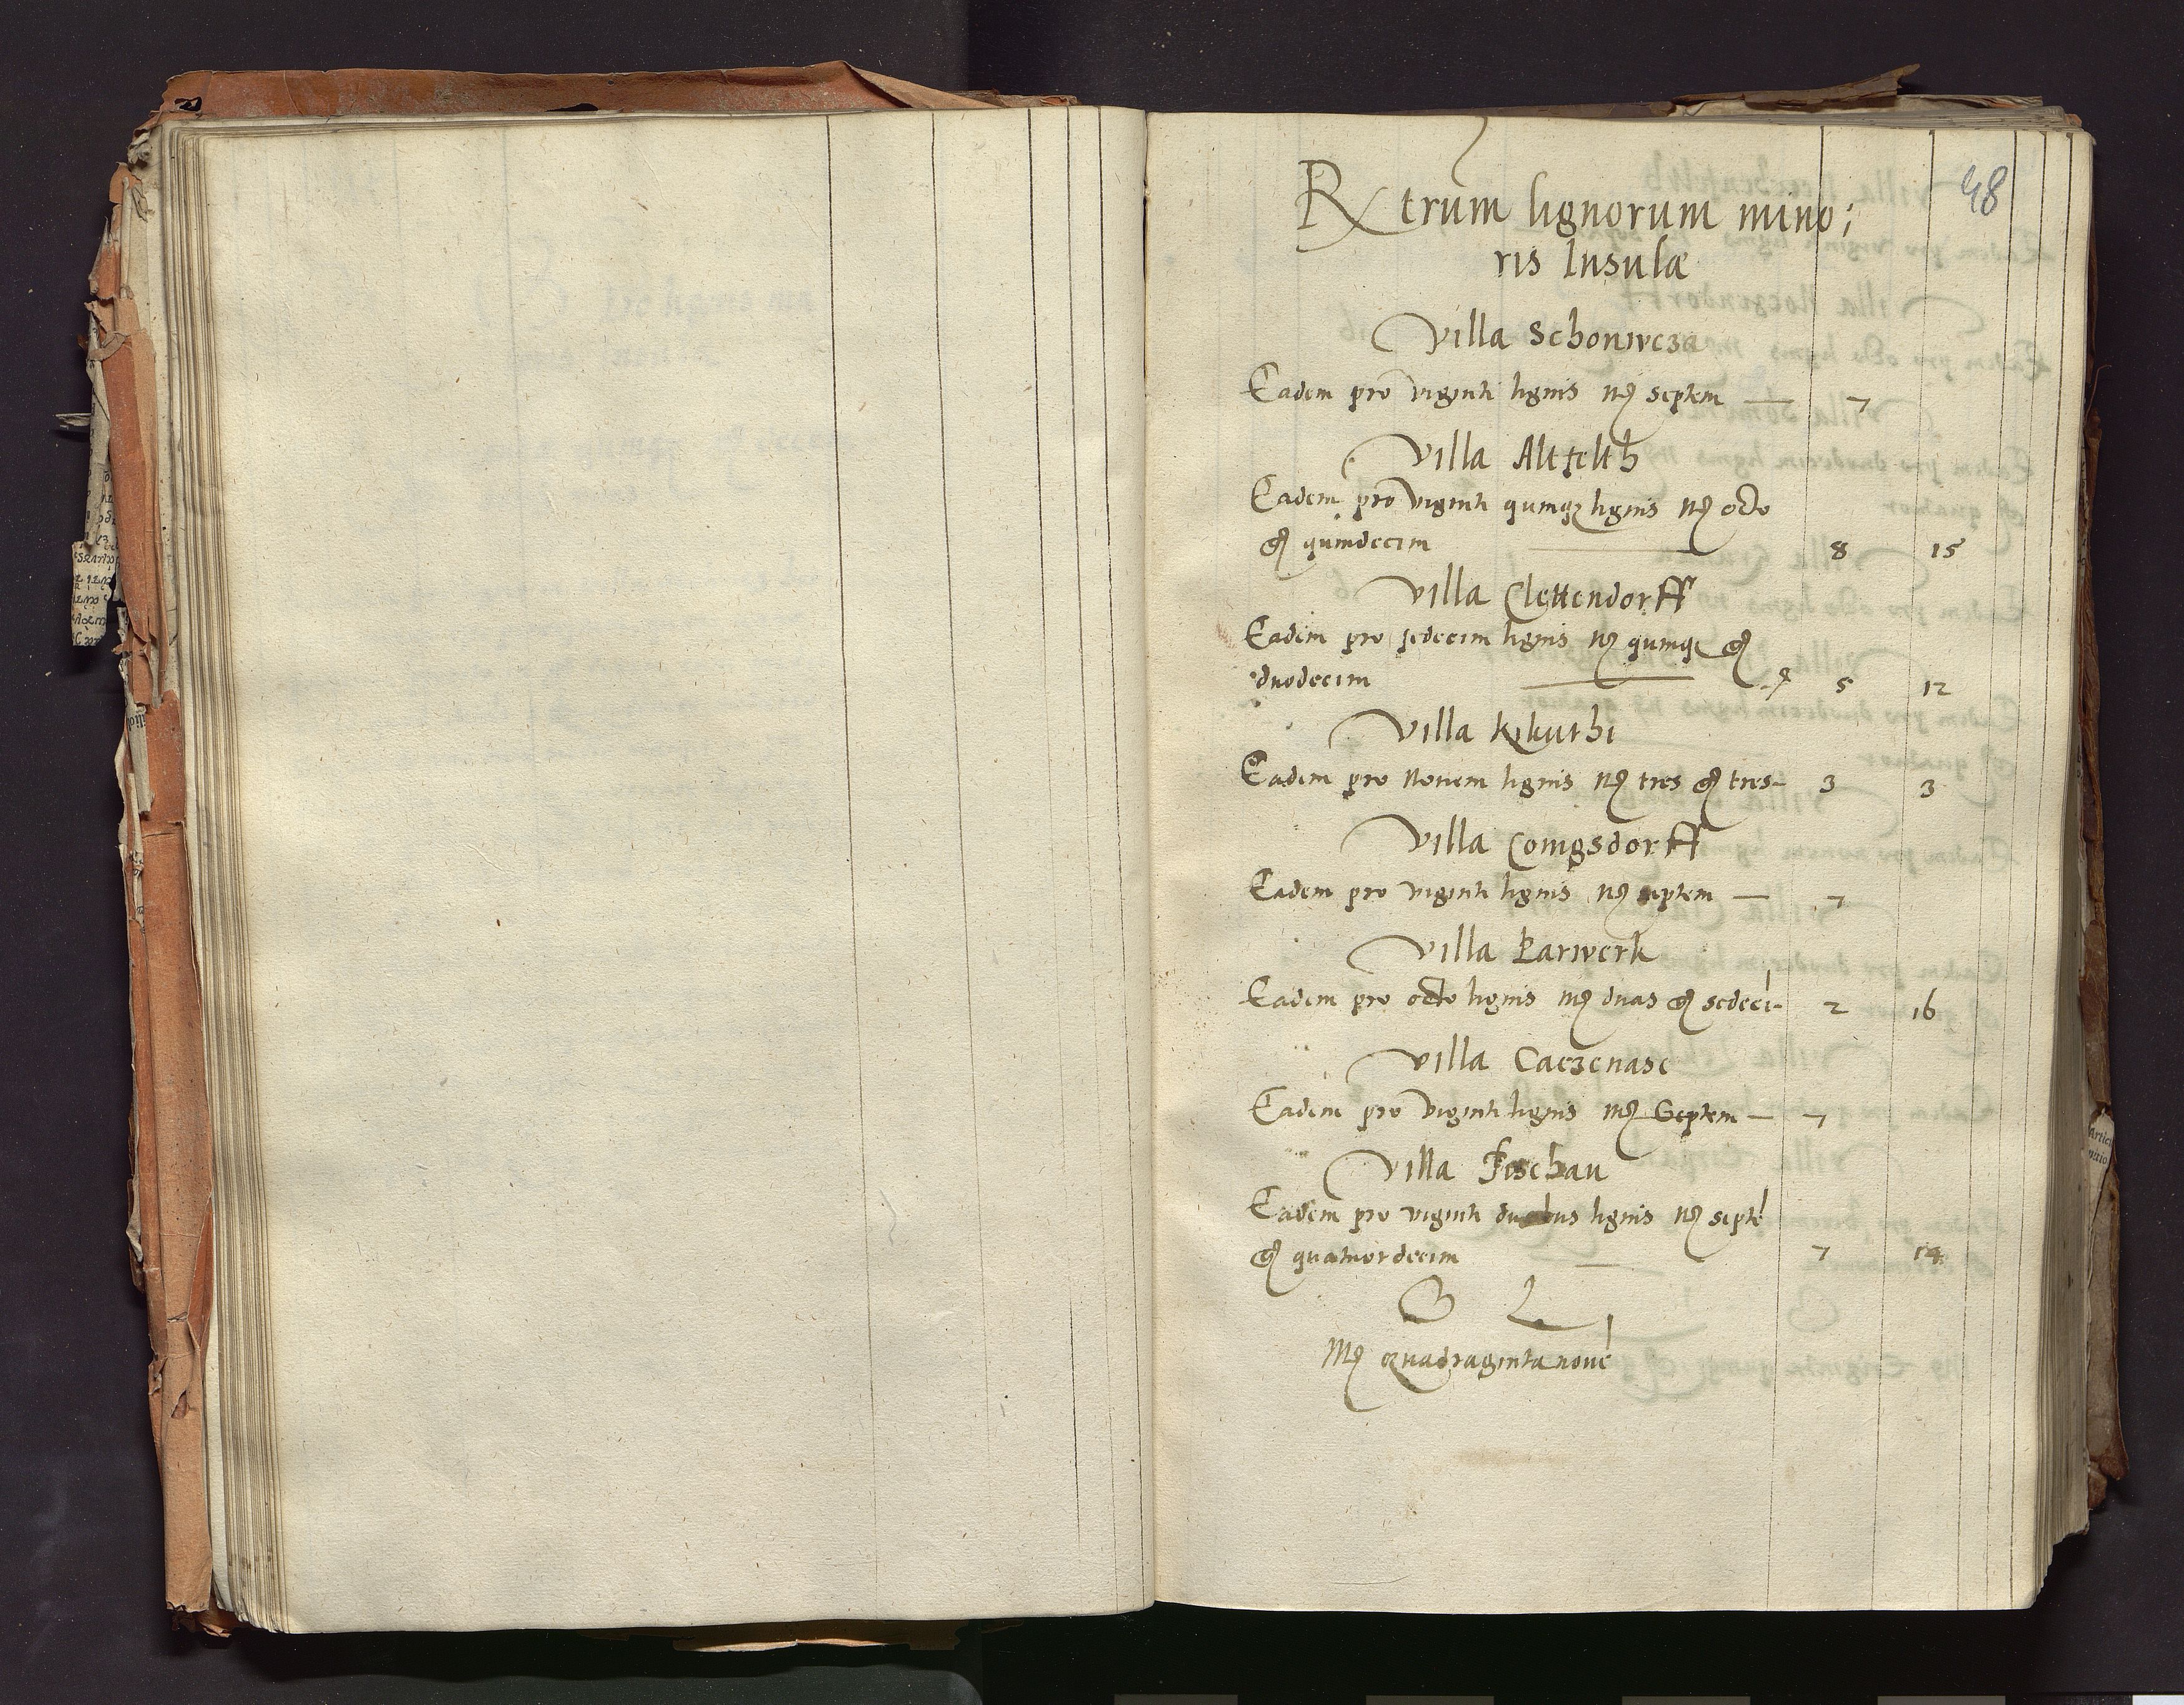 48
Rx trum lignorum mino:
ris Insulæ
Villa Schonweza
Eadem pro viginti lignis mꝝ septem — 7
Villa Altfelth
Eadem pro viginti quinqꝫ lignis mꝝ octo
gꝝ quindecim — 8 15
Villa Clettendorff
Eadem pro sedecim lignis mꝝ quinqꝫ gꝝ
duodecim — 5 12
Villa Kykuthi
Eadem pro Novem lignis mꝝ tres gꝝ tres - 3 3
Villa Conigsdorff
Eadem pro viginti lignis mꝝ septem — 7
Villa Parwerk
Eadem pro octo lignis mꝝ duas gꝝ sedeci - 2 16
Villa Caczenase
Eadem pro viginti lignis mꝝ Septem — 7
Villa Fischau
Eadem pro viginti duobus lignis mꝝ septē
gꝝ quatuordecim — 7 14
Mꝝ quadraginta novē